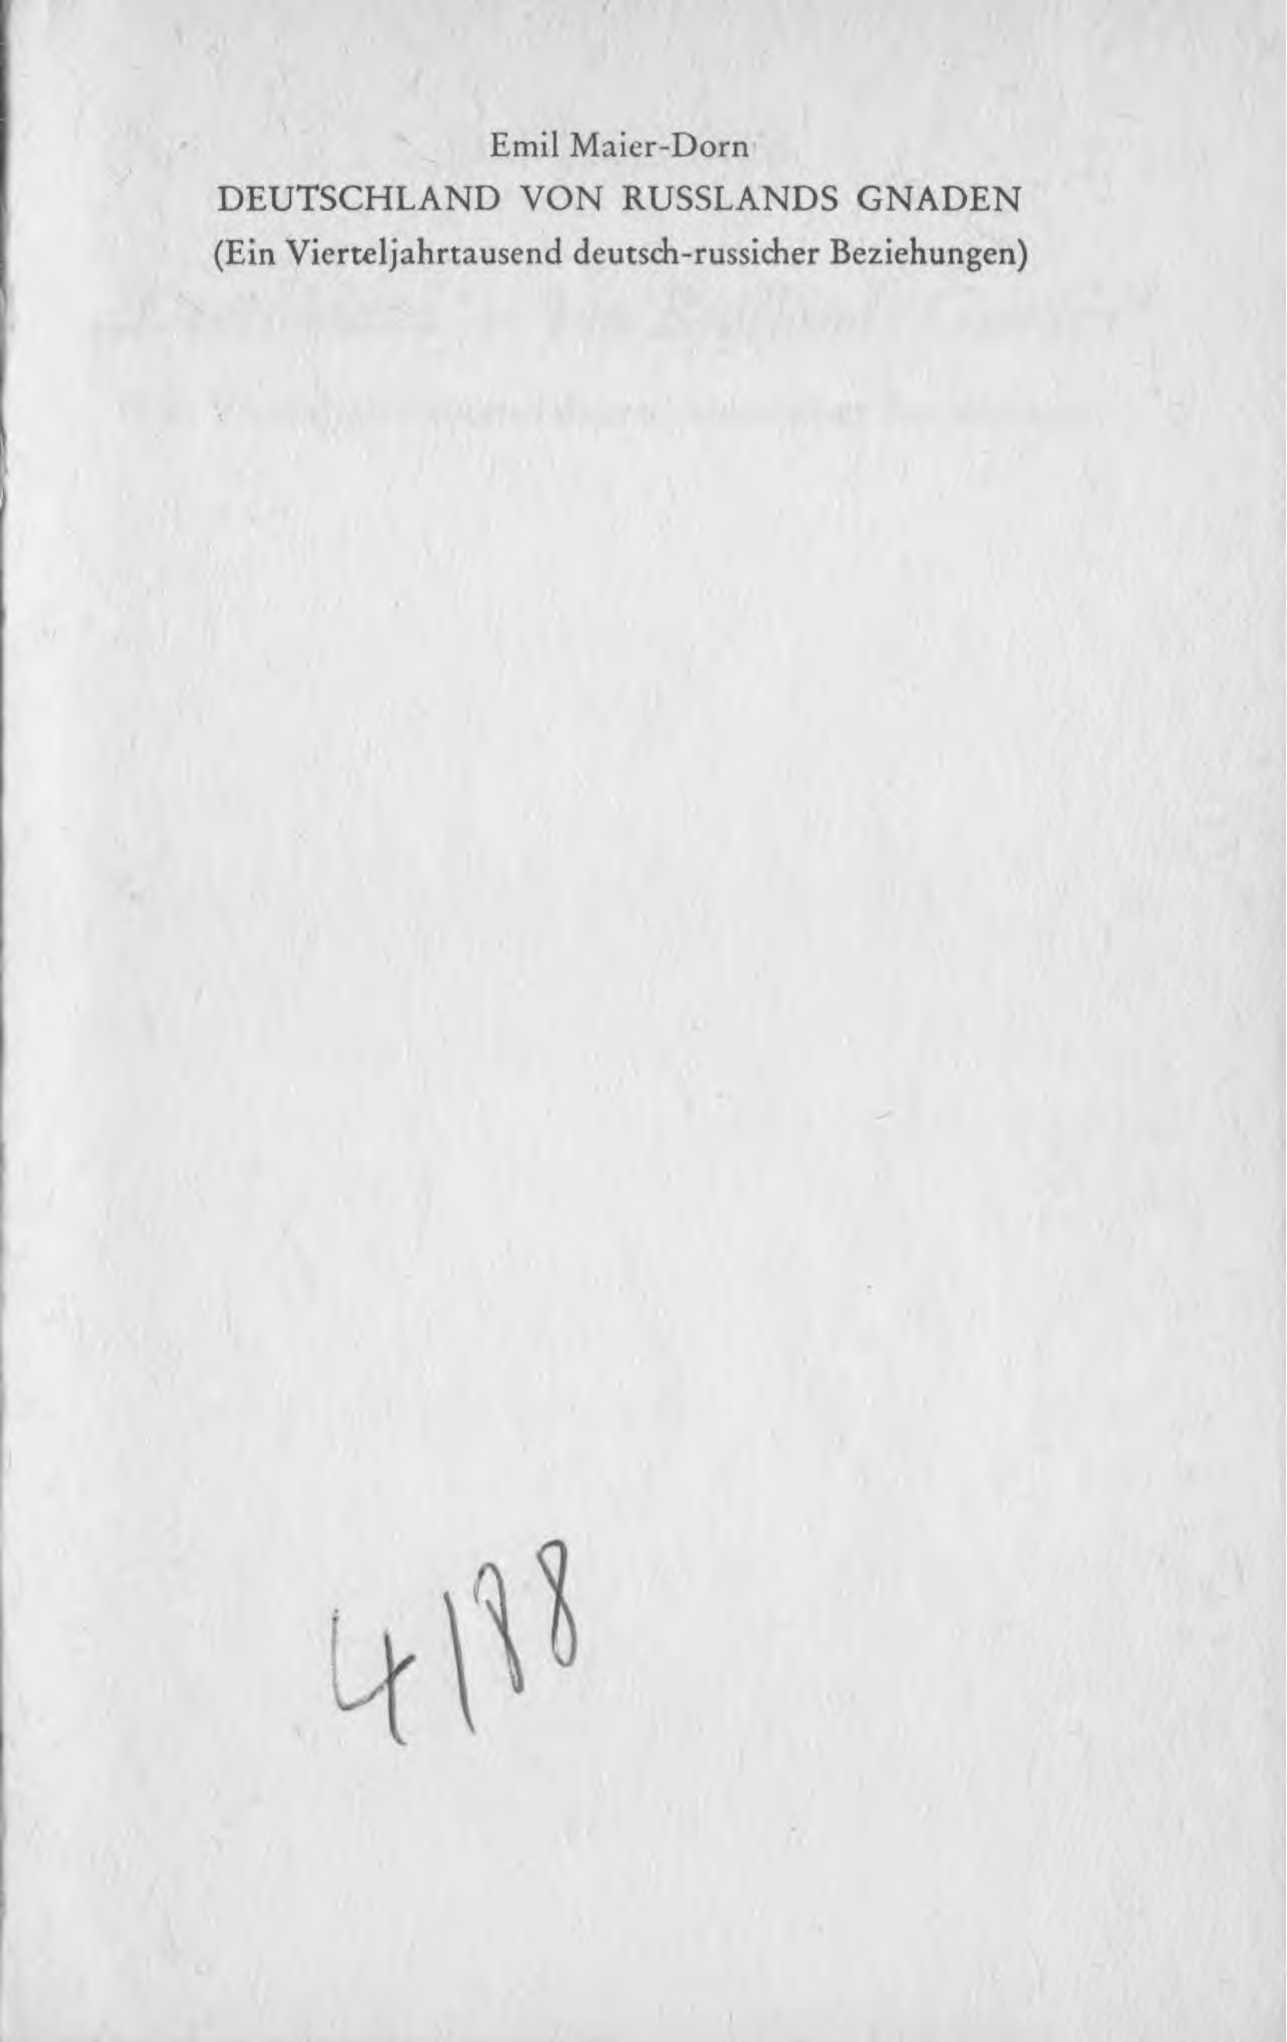 Emil Maier-Dorn
DEUTSCHLAND VON RUSSLANDS GNADEN
(Ein Vierteljahrtausend deutsch-russicher Beziehungen)
4/88